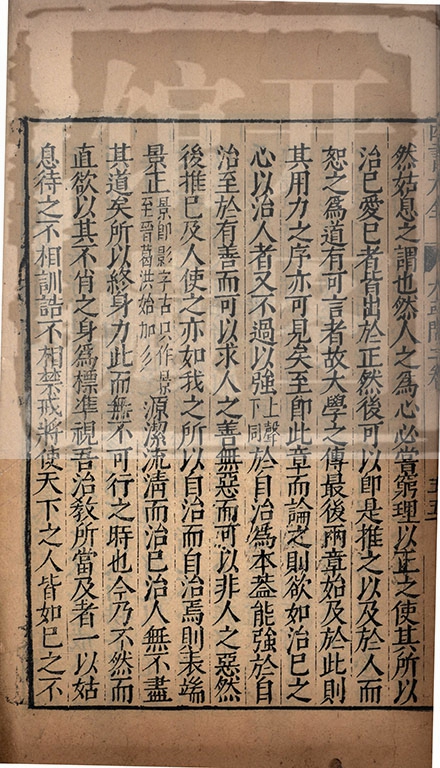 然姑息之謂也然人之為心必嘗窮理以正之使其所以
治已愛已者皆出於正然後可以即是推之以及於人而
恕之為道有可言者故大學之傳最後兩章始及於此則
其用力之序亦可見矣至即此章而論之則欲如治已之
心以治人者又不過以強上聲下同於自治為本蓋能強於自
治至於有善而可以求人之善無惡而可以非人之惡然
後推已及人使之亦如我之所以自治而自治焉則表端
景正景即影字古只作景至晉葛洪始加彡源潔流清而治已治人無不盡
其道矣所以終身力此而無不可行之時也今乃不然而
直欲以其不肖之身為標準視吾治教所當及者一以姑
息待之不相訓誥不相禁戒將使天下之人皆如已之不